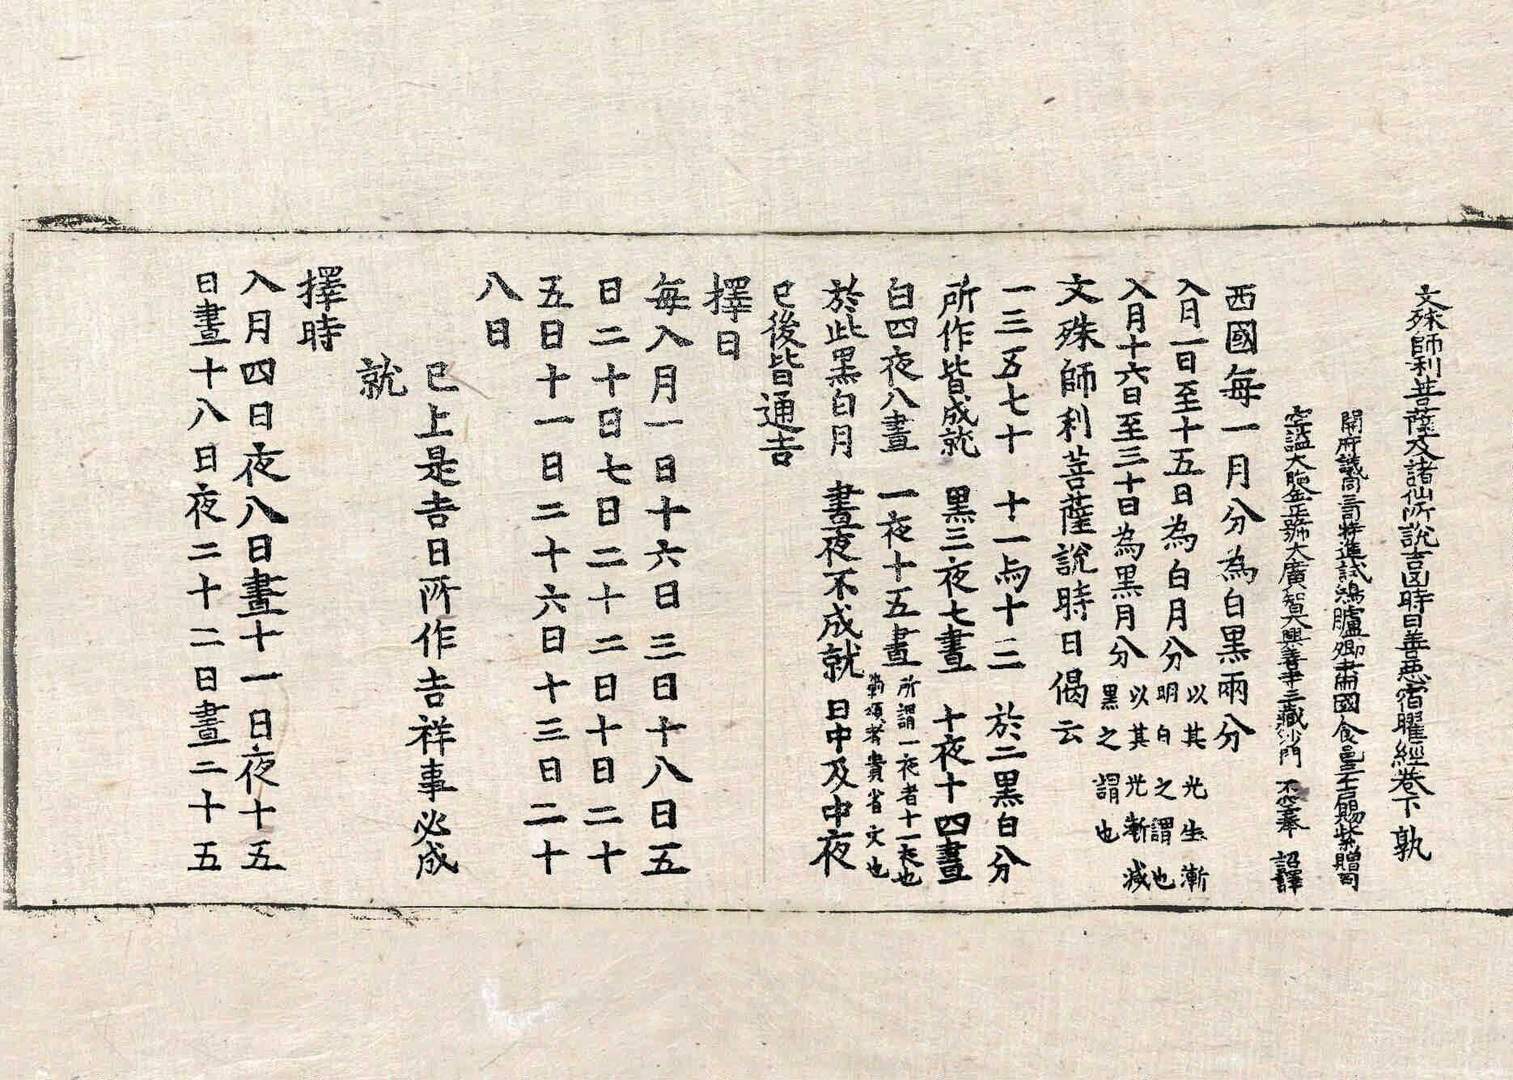 文殊師利菩薩及諸仙所說吉凶時日善惡宿曜經卷下 孰
開府儀同三司特進試鴻臚卿肅國公食邑三千戶賜紫贈司
空諡大鑒正號大廣智大興善寺三藏沙門 不空奉 詔譯
西國每一月分為白黑兩分
入月一日至十五日為白月分 以其光生漸明白之謂也
入月十六日至三十日為黑月分 以其光漸減黑之謂也
文殊師利菩薩說時日偈云
一三五七十 十一与十三 於二黑白分
所作皆成就 黑三夜七晝 十夜十四晝
白四夜八晝 一夜十五晝 所謂一夜者十一夜也 頌者貴省文也
於此黑白月 晝夜不成就 日中及中夜
已後皆通吉
擇日
每入月一日十六日三日十八日五
日二十日七日二十二日十日二十
五日十一日二十六日十三日二十
八日
已上是吉日所作吉祥事必成
就
擇時
入月四日夜八日晝十一日夜十五
日晝十八日夜二十二日晝二十五